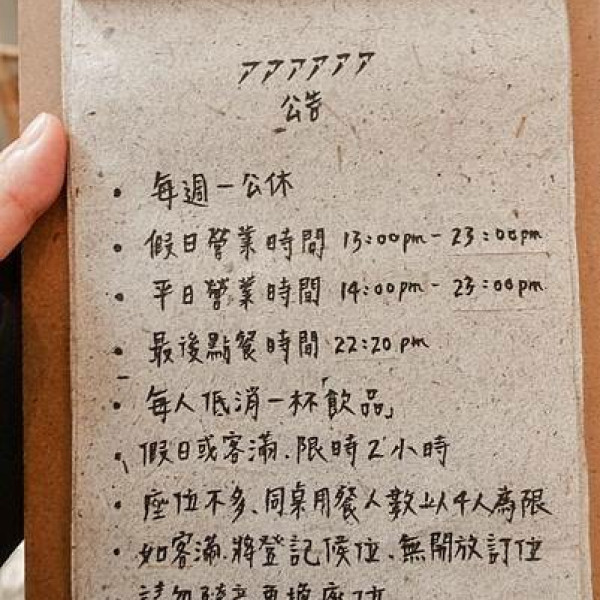 アアアアアア
公告
• 每週一公休
• 假日營業時間 13:00pm - 23:00pm
• 平日營業時間 14:00pm - 23:00pm
• 最後點餐時間 22:20pm
• 每人低消一杯「飲品」
• 假日或客滿、限時2小時
• 座位不多、同桌用餐人數以4人為限
• 如客滿、將登記候位、無開放訂位
請勿隨意更換座位